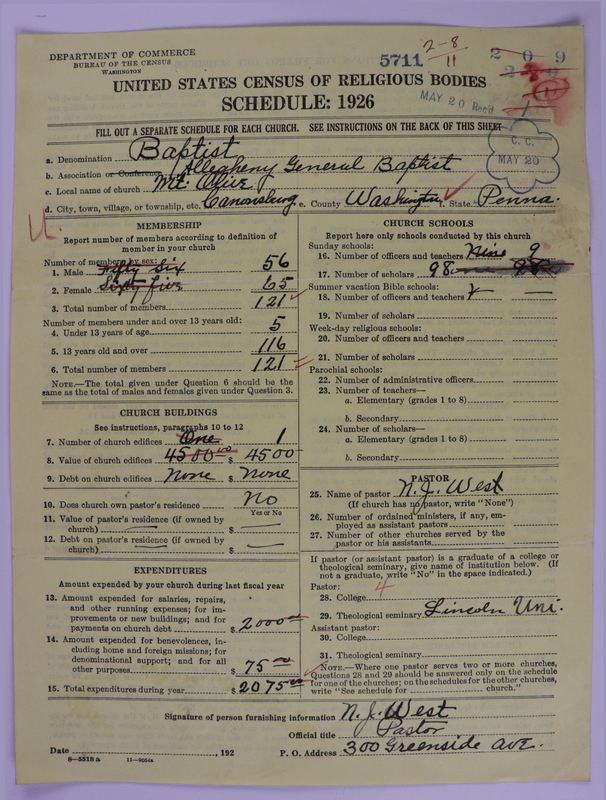 DEPARTMENT OF COMMERCE
BUREAU OF THE CENSUS
WASHINGTON
5711
2-8
11
2 0 9
MAY 20 Rec'd
C. C.
MAY 20
UNITED STATES CENSUS OF RELIGIOUS BODIES
SCHEDULE: 1926
FILL OUT A SEPARATE SCHEDULE FOR EACH CHURCH. SEE INSTRUCTIONS ON THE BACK OF THIS SHEET
a. Denomination Baptist
b. Association or Conference Allegheny General Baptist
c. Local name of church Mt. Olive
d. City, town, village, or township, etc. Canonsburg e. County Washington f. State Penna.
MEMBERSHIP
Report number of members according to definition of member in your church
Number of members by sex:
1. Male Fifty Six 56
2. Female Sixty five 65
3. Total number of members 121
Number of members under and over 13 years old:
4. Under 13 years of age 5
5. 13 years old and over 116
6. Total number of members 121
NOTE.—The total given under Question 6 should be same as the total of males and females given under Question 3.
CHURCH BUILDINGS
See instructions, paragraphs 10 to 12
7. Number of church edifices One 1
8. Value of church edifices 4500.00 $ 4500
9. Debt on church edifices None $ None
10. Does church own pastor's residence No
Yes or No
11. Value of pastor's residence (if owned by church) $
12. Debt on pastor's residence (if owned by church) $
EXPENDITURES
Amount expended by your church during last fiscal year
13. Amount expended for salaries, repairs, and other running expenses; for improvements or new buildings; and for payments on church debt $ 2000
14. Amount expended for benevolences, including home and foreign missions; for denominational support; and for all other purposes $ 75
15. Total expenditures during year $ 2075
CHURCH SCHOOLS
Report here only schools conducted by this church
Sunday schools:
16. Number of officers and teachers Nine 9
17. Number of scholars 98
Summer vacation Bible schools:
18. Number of officers and teachers
19. Number of scholars
Week-day religious schools:
20. Number of officers and teachers
21. Number of scholars
Parochial schools:
22. Number of administrative officers
23. Number of teachers—
a. Elementary (grades 1 to 8)
b. Secondary
24. Number of scholars—
a. Elementary (grades 1 to 8)
b. Secondary
PASTOR
25. Name of pastor N. J. West
(If church has no pastor, write "None")
26. Number of ordained ministers, if any, employed as assistant pastors
27. Number of other churches served by the pastor or his assistants
If pastor (or assistant pastor) is a graduate of a college or theological seminary, give name of institution below. (If not a graduate, write "No" in the space indicated.)
Pastor: 4
28. College
29. Theological seminary Lincoln Uni.
Assistant pastor:
30. College
31. Theological seminary
NOTE.—Where one pastor serves two or more churches, Questions 28 and 29 should be answered only on the schedule for one of the churches; on the schedules for the other churches, write "See schedule for church."
Signature of person furnishing information N. J. West
Official title Pastor
Date , 192 P. O. Address 300 Greenside ave.
8—5518 a 11—9054a